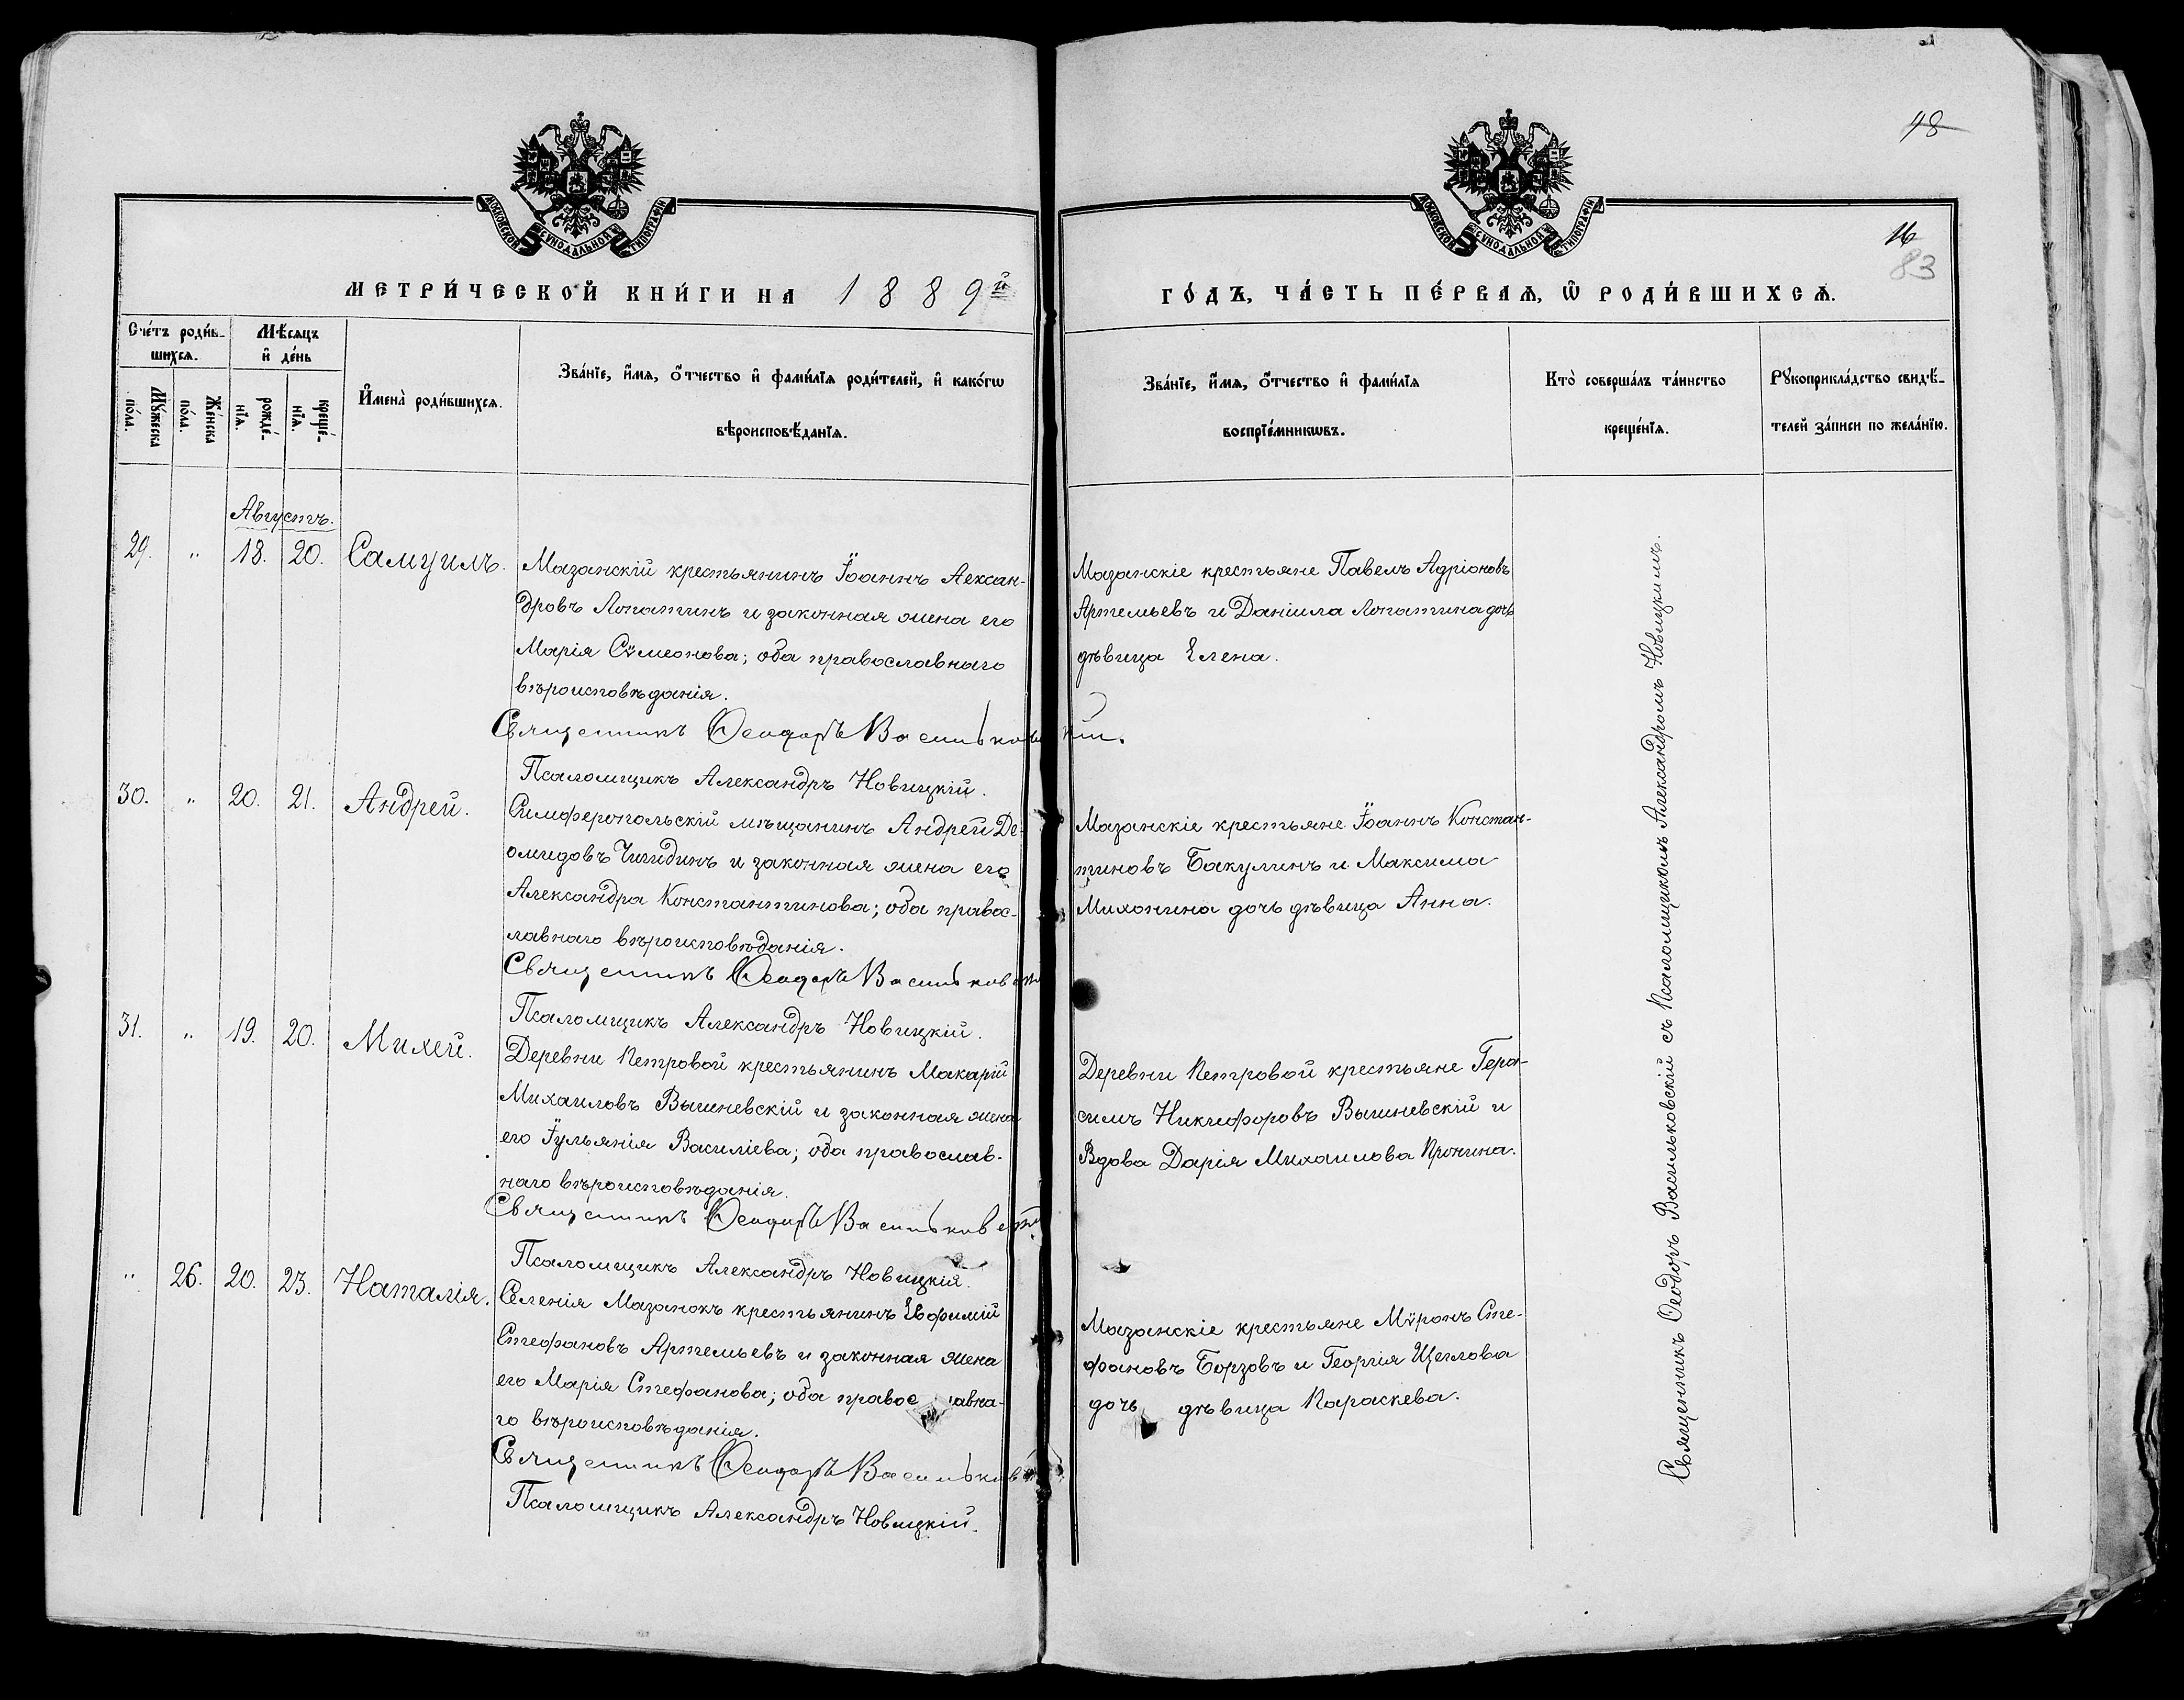 48
МОСКОВСКОЙ СУНОДАЛЬНОЙ ТИПОГРАФІИ
МОСКОВСКОЙ СУНОДАЛЬНОЙ ТИПОГРАФІИ
16
83
МЕТРИ́ЧЕСКОЙ КНИ́ГИ НА 1889й
ГО́ДЪ, ЧА́СТЬ ПЕ́РВАѦ, Ѿ РОДИ́ВШИХСѦ.
Сче́тъ роди́в-
шихсѧ.
Мꙋ́жеска по́ла.
Же́нска по́ла.
Мѣ́сѧцъ
и҆ де́нь
рожде́-
нїѧ.
креще́-
нїѧ.
И҆мена̀ роди́вшихсѧ.
Зва́нїе, и҆́мѧ, ѻ҆́тчество и҆ фами́лїѧ роди́телей, и҆ како́гѡ
вѣроисповѣ́данїѧ.
Зва́нїе, и҆́мѧ, ѻ҆́тчество и҆ фами́лїѧ
воспрїе́мникѡвъ.
Кто̀ соверша́лъ та́инство
креще́нїѧ.
Рꙋкоприкла́дство свидѣ́-
телей за́писи по жела́нїю.
Августъ.
29. „ 18. 20. Самуилъ.
Мазанскій крестьянинъ Іоаннъ Аексан-
дровъ Лопатинъ и законная жена его
Марія Сѵмеонова; оба православнаго
вѣроисповѣданія.
Священникъ Ѳеодоръ Васильковскій.
Псаломщикъ Александръ Новицкій.
Мазанскіе крестьяне Павелъ Адріоновъ
Артемьевъ и Даніила Лопатина дочь
дѣвица Елена.
30. „ 20. 21. Андрей.
Симферопольскій мѣщанинъ Андрей Де-
омидовъ Чигидинъ и законная жена его
Александра Константинова; оба правос-
лавнаго вѣроисповѣданія.
Священникъ Ѳеодоръ Васильковскій
Псаломщикъ Александръ Новицкій.
Мазанскіе крестьяне Іоаннъ Констан-
тиновъ Бакулинъ и Максима
Михонина дочь дѣвица Анна.
31. „ 19. 20. Михей.
Деревни Петровой крестьянинъ Макарій
Михаиловъ Вышневскій и законная жена
его Іульянія Василіева; оба православ-
наго вѣроисповѣданія.
Священникъ Ѳеодоръ Васильковскій
Псаломщикъ Александръ Новицкія.
Деревни Петровой крестьяне Гера-
симъ Никифоровъ Вышневскій и
Вдова Дарія Михаилова Пронина.
„ 26. 20. 23. Наталія.
Селенія Мазанокъ крестьянинъ Евфимій
Стефановъ Артемьевъ и законная жена
его Марія Стефанова; оба правос авна-
го вѣроисповѣданія.
Священникъ Ѳеодоръ Васильковскій
Псаломщикъ Александръ Новицкій.
Мазанскіе крестьяне Мѵронъ Сте-
фановъ Борзовъ и Георгія Щеглова
дочь дѣвица Параскева.
Священникъ Ѳеодоръ Васильковскій съ Псаломщикомъ Александромъ Новицкимъ.